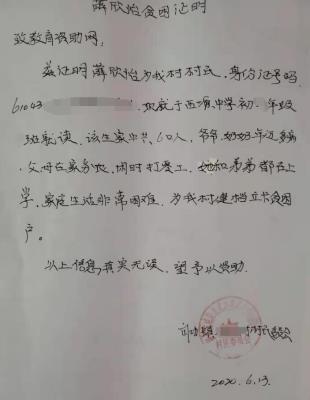 薛欣怡贫困证明
致教育援助网:
兹证明薛欣怡为我村村民,身份证号码
61043
就读于西 中学初 年级
班就读,该生家中共6口人,爷爷奶奶年迈多病,
父母在家务农,闲时打零工,她和弟弟都在上
学,家庭生活非常困难,为我村建档立卡贫困
户。
以上信息真实无误,望予以资助.
村
2020.6.13.